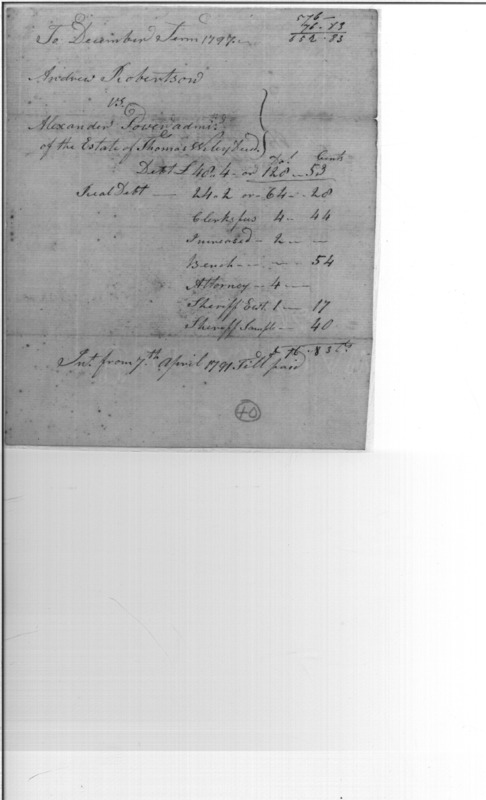 576 —
76 . 83
652 . 83
To December Term 1797
Andrew Robertson
vs.
Alexander admr.
of the Estate of Thomas Wiley Decd.
Dol. Cents
Debt £ 48.4 — or 128 — 53
Real Debt — 24.2 or — 64 — 28
Clerks fees 4 — 44
Increased — 2 — —
Bench — — — 54
Attorney — 4 —
Sheriff Ewt. 1 — 17
Sheriff Sample — 40
76 . 83 cts
Int. from 7th April 1791 Till paid
40